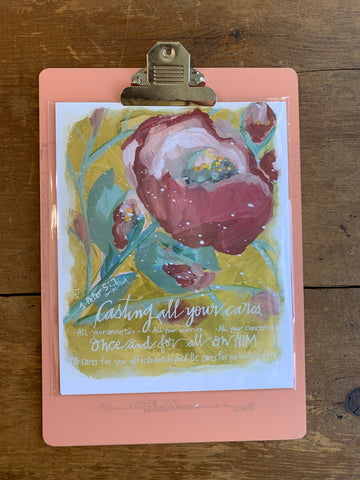 1 Peter 5:7
Casting all your cares
- All your anxieties - All your worries - All your concerns
once and for all on HIM
He cares for you affectionately and He cares for you